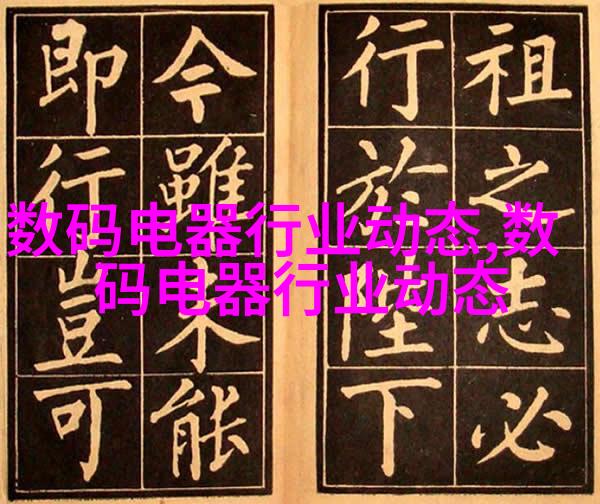 祖之志必
行於陛下
今雖未能
即行豈可
数码电器行业动态,数
码电器行业动态